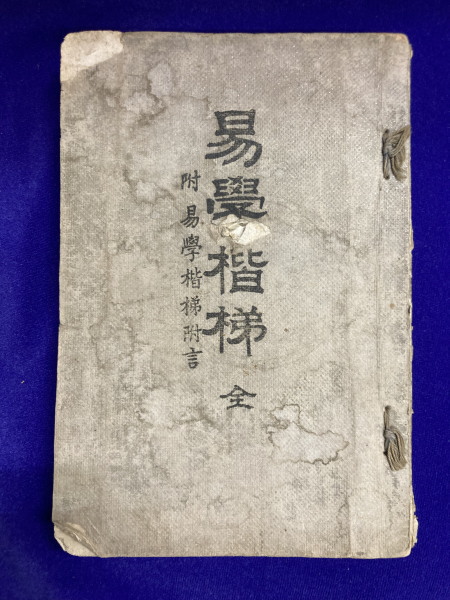 易學楷梯 全
附易學楷梯附言